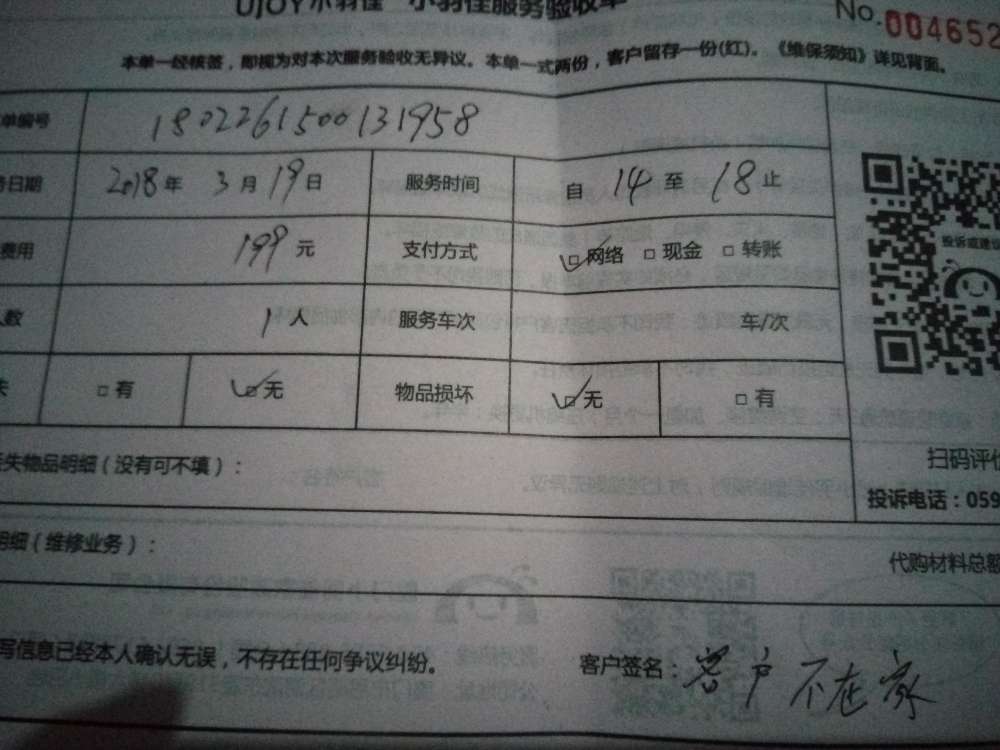 UJOY小羽佳 小羽佳服务验收单
No.004652
本单一经核签，即视为对本次服务验收无异议。本单一式两份，客户留存一份(红)。《维保须知》详见背面。
单编号 180226150013 1958
日期 2018年 3月19日 服务时间 自 14 至 18 止
费用 199 元 支付方式 □网络 □现金 □转账
投诉或建议
人数 1人 服务车次 车/次
失 □有 □无 物品损坏 □无 □有
扫码评价
丢失物品明细（没有可不填）：
投诉电话：059
明细（维修业务）：
代购材料总额
写信息已经本人确认无误，不存在任何争议纠纷。
客户签名：客户不在家